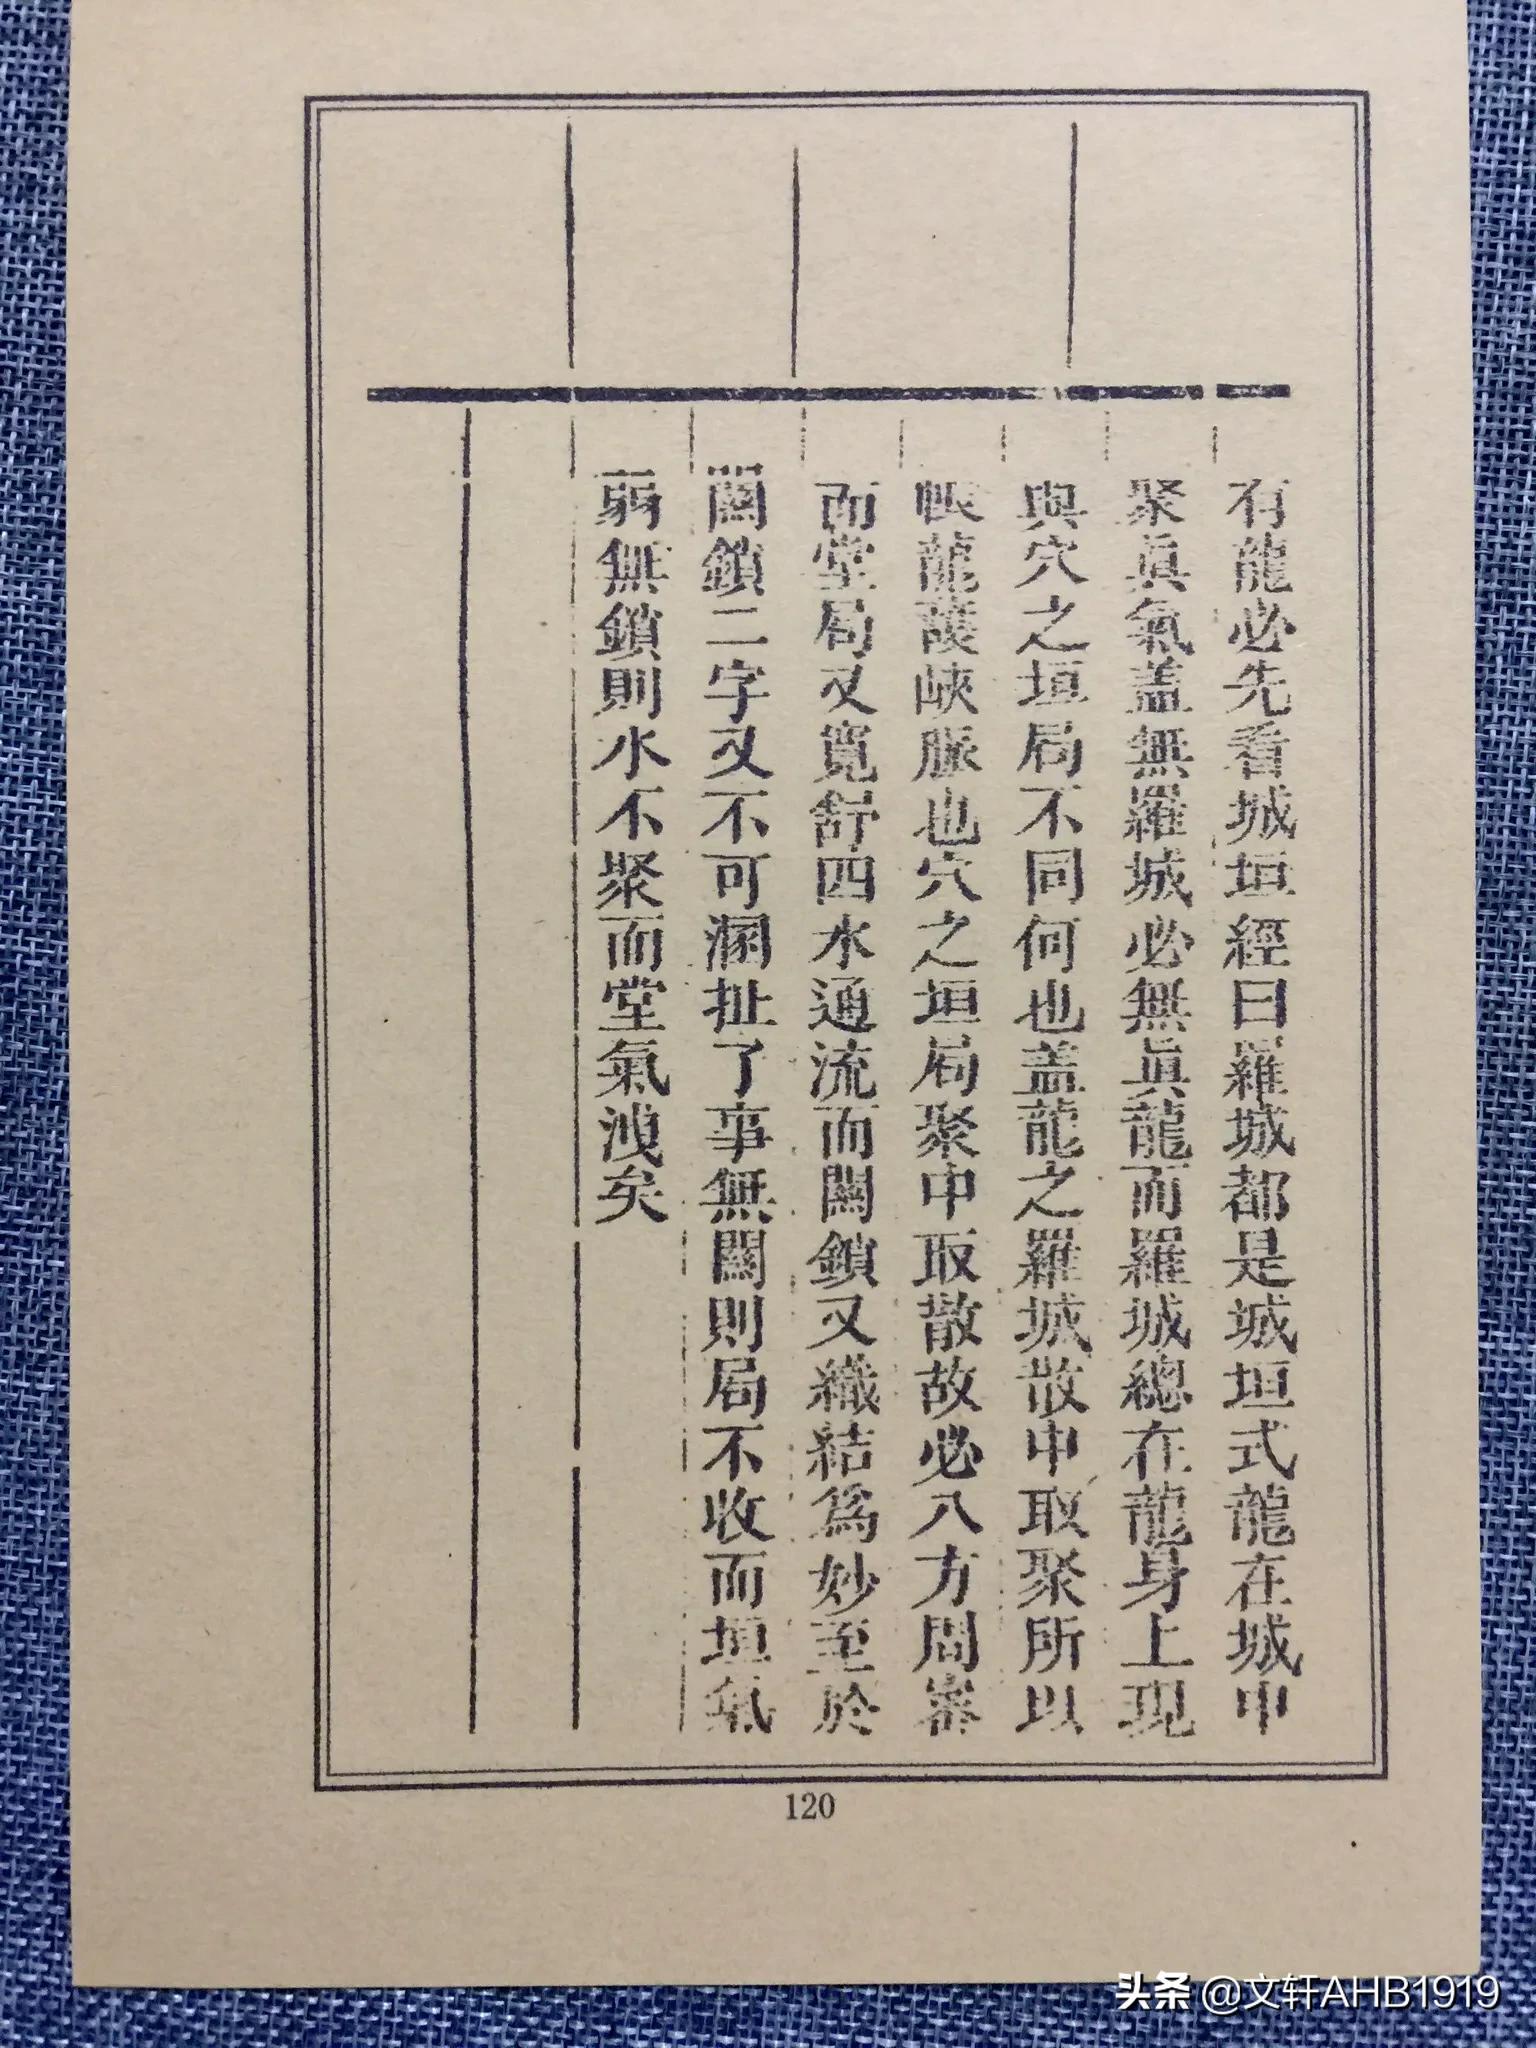 有龍必先看城垣經曰羅城都是城垣式龍在城中
聚眞氣盖無羅城必無眞龍而羅城總在龍身上現
與穴之垣局不同何也盖龍之羅城散中取聚所以
帳龍護峽脈也穴之垣局聚中取散故必八方問審
而堂局又寬舒四水通流而關鎖又織結爲妙至於
關鎖二字又不可溷扯了事無關則局不收而垣氣
弱無鎖則水不聚而堂氣洩矣
120
头条 @文轩AHB1919